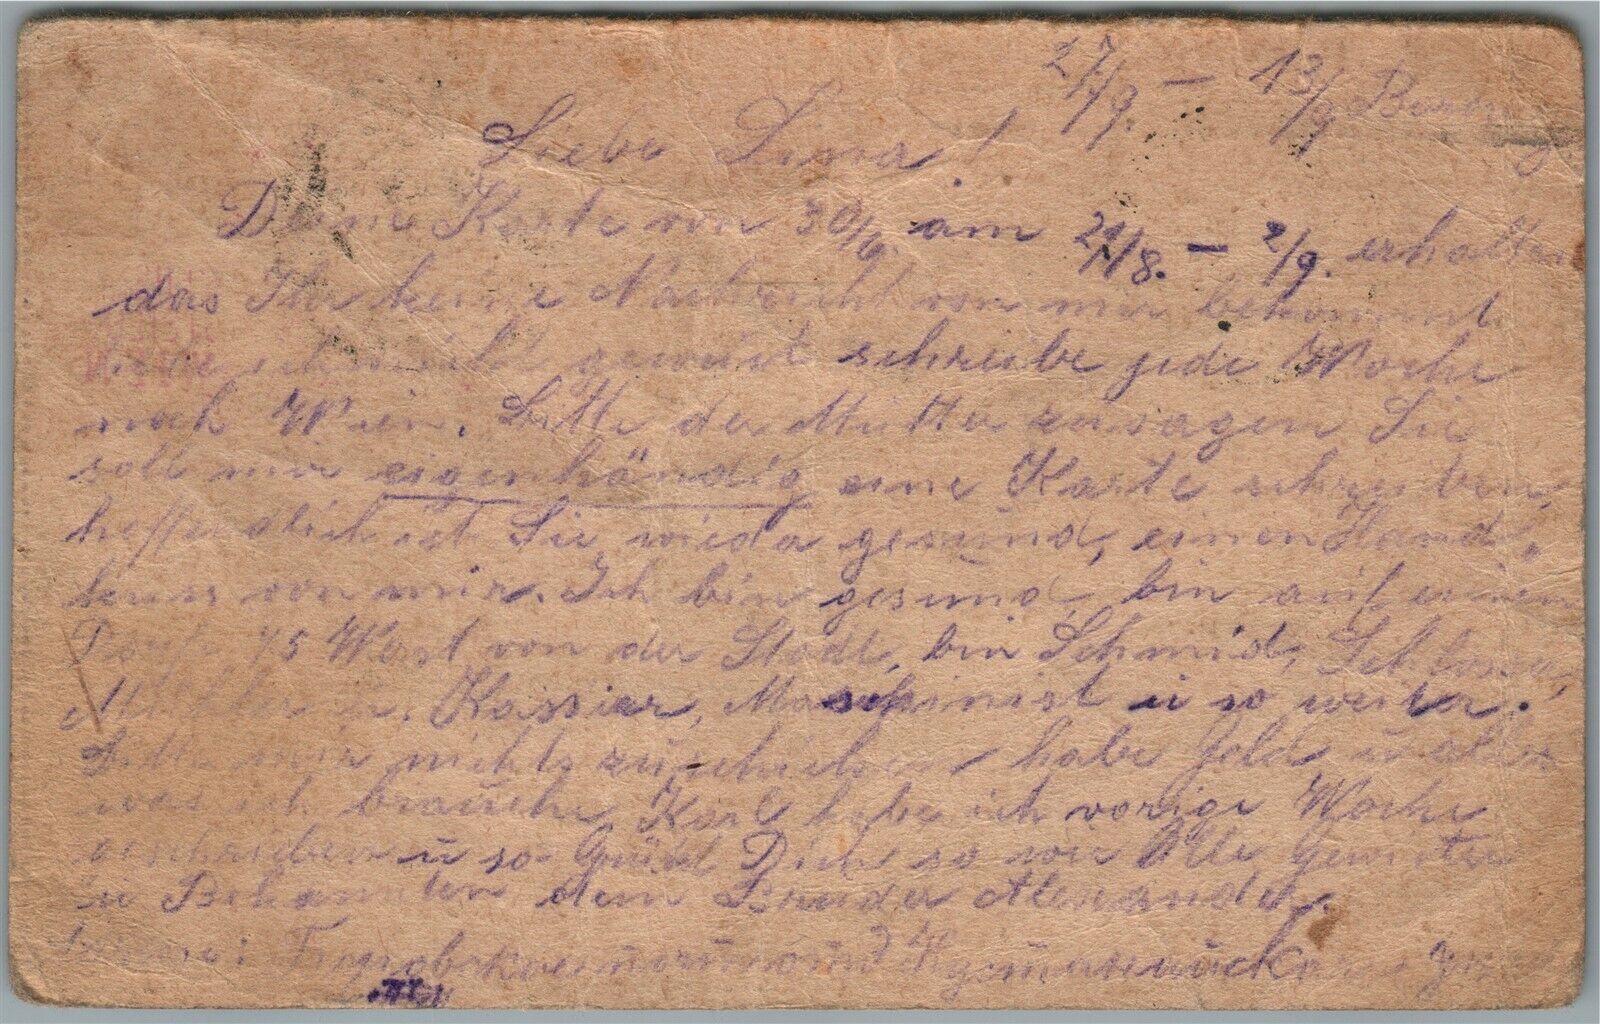 27/9. – 13/9
Liebe Lina!
Deine Karte von 30/6. am 21/8. – 2/9. erhalten
das Ihr keine Nachricht von mir bekommt
habe ich nicht gewust schreibe jede Woche
nach Wien. Bitte der Mutter zu sagen Sie
soll mir eigenhändig eine Karte schreiben,
hoffendlich ist Sie wieder gesund, einen Hand-
kuss von mir. Ich bin gesund, bin auf einem
45 Werst von der Stadt, bin Schmid, Schlosser,
Kassier, Maschinist u so weiter.
Bitte mir nichts zu schicken habe Geld u alles
was ich brauche Karl habe ich vorige Woche
geschrieben u so Grüßt Dich so wie Alle
u Bekannten dein Bruder Alexander.